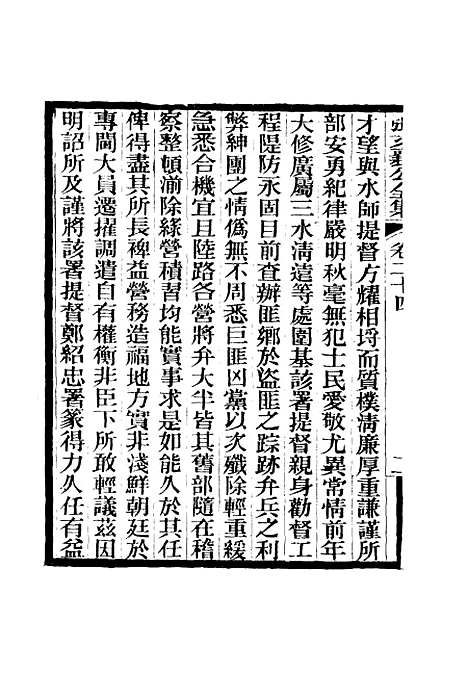 張文襄公全集 卷二十四 二
才望與水師提督方耀相埒而質樸淸廉厚重謙謹所
部安勇紀律嚴明秋毫無犯士民愛敬尤異常情前年
大修廣屬三水淸遠等處圍基該署提督親身勸督工
程隄防永固目前查辦匪鄉於盜匪之踪跡弁兵之利
弊紳團之情僞無不周悉巨匪凶黨以次殲除輕重緩
急悉合機宜且陸路各營將弁大半皆其舊部隨在稽
察整頓湔除綠營積習均能實事求是如能久於其任
俾得盡其所長裨益營務造福地方實非淺鮮朝廷於
專閫大員遷擢調遣自有權衡非臣下所敢輕議茲因
明詔所及謹將該署提督鄭紹忠署篆得力久任有益